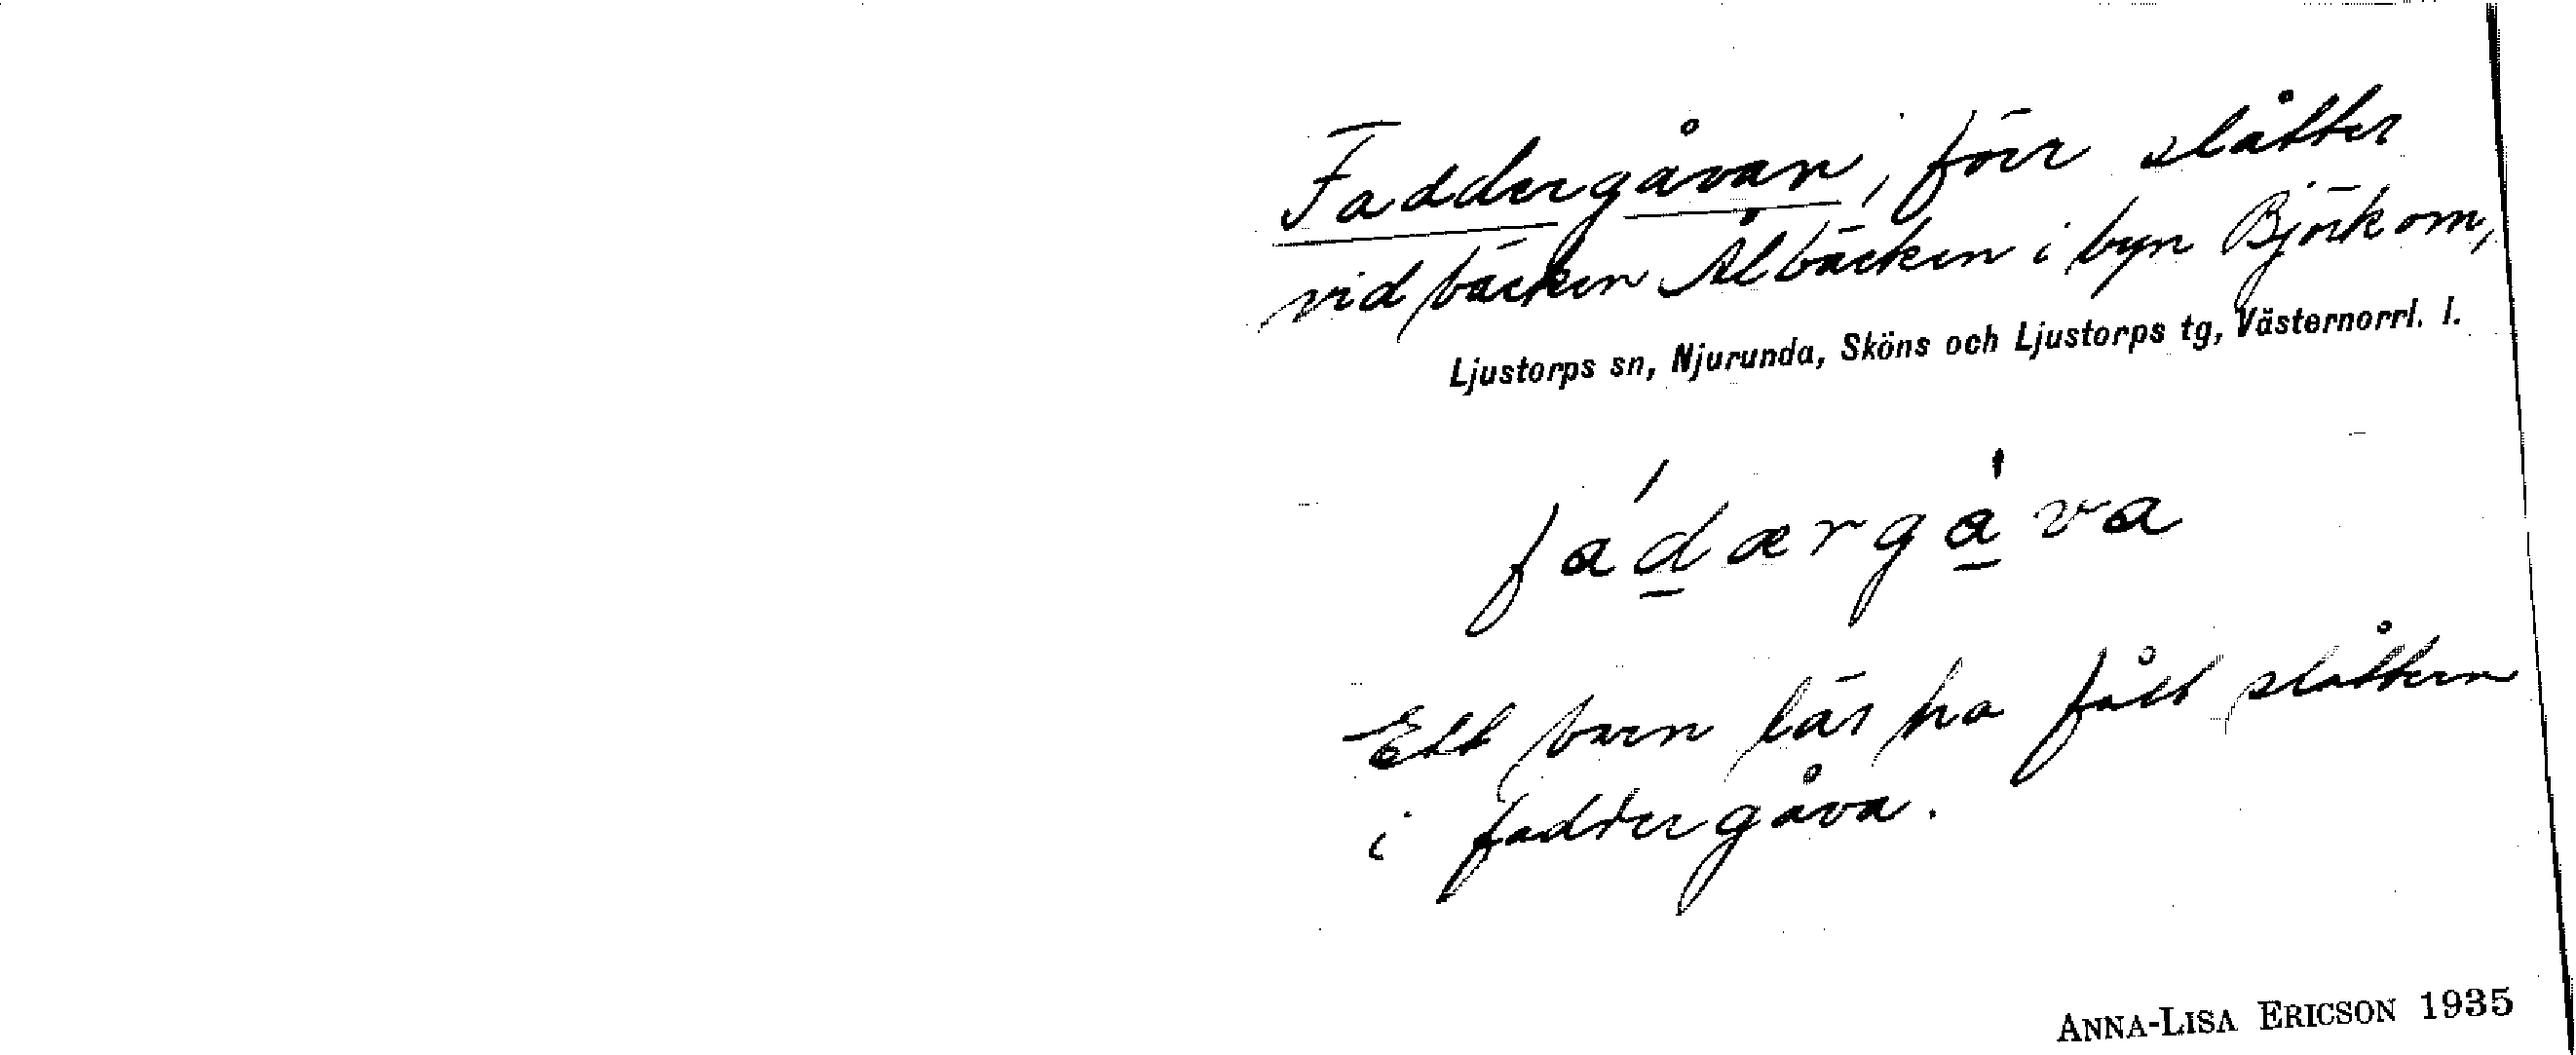 Faddergåvan, förr slåtter
vid bäcken Ålbäcken i byn Björkom,
Ljustorps sn, Njurunda, Sköns och Ljustorps tg, Västernorrl. l.
fádærgàva
Ett barn lär ha fått slåttern
i faddergåva.
ANNA-LISA ERICSON 1935